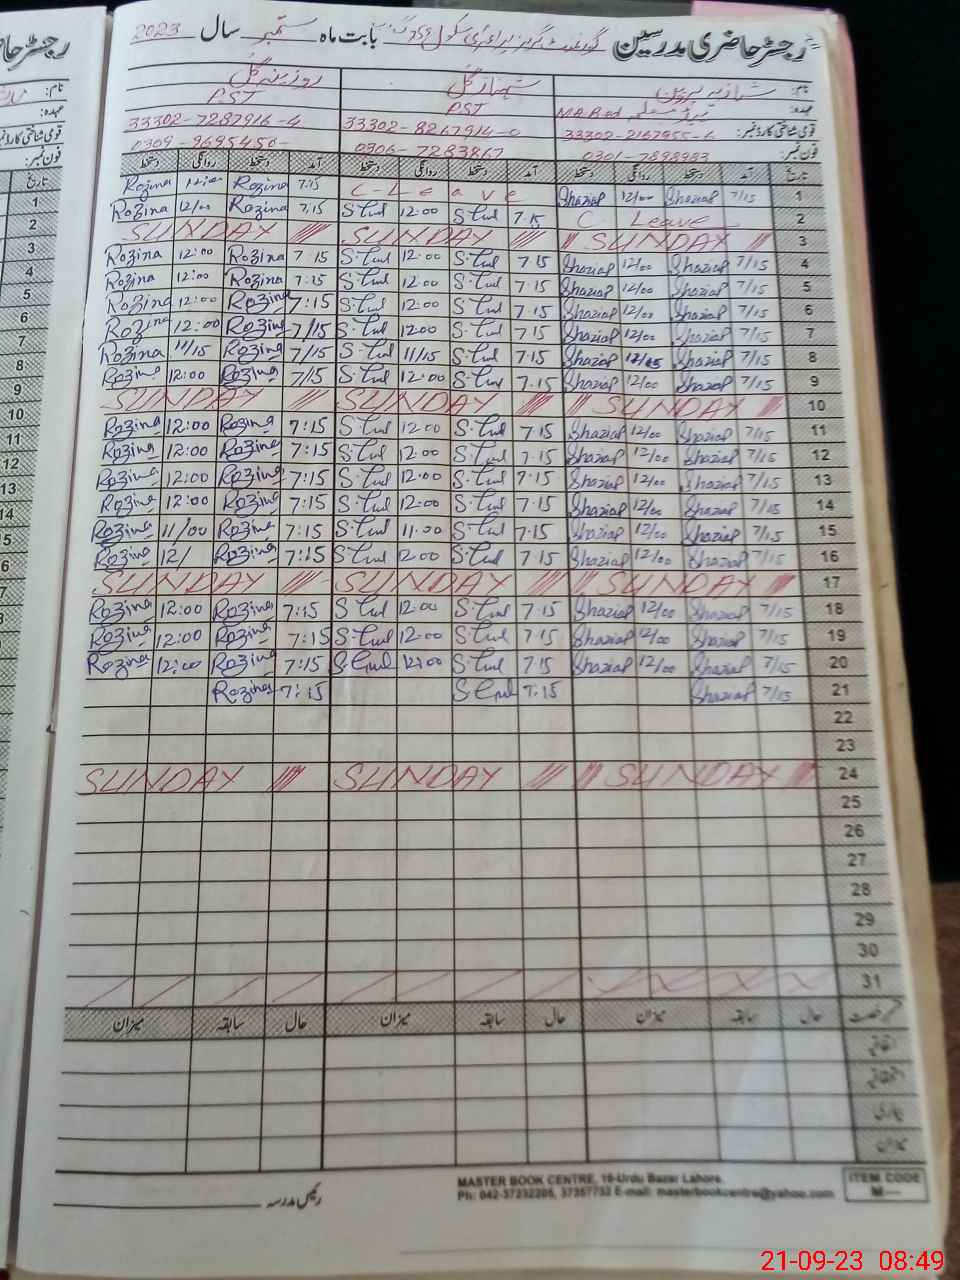 رجسٹر حاضری مدرسین گورنمنٹ گرلز پرائمری سکول بابت ماہ ستمبر سال 2023
نام: شازیہ پروین شہناز گل روزینہ گل
عہدہ: PST PST
قومی شناختی کارڈ نمبر: 33302-2167955-6 33302-8267914-0 33302-7287916-4
فون نمبر: 0301-7898983 0306-7283867 0309-9695450
تاریخ آمد دستخط روانگی دستخط آمد دستخط روانگی دستخط آمد دستخط روانگی دستخط
Rozina 12:00 Rozina 7:15 C-Leave Shazial 12/00 Shazial 7/15 1
Rozina 12/00 Rozina 7:15 S.Gul 12:00 S.Gul 7:15 C Leave 2
SUNDAY SUNDAY SUNDAY 3
Rozina 12:00 Rozina 7:15 S.Gul 12:00 S.Gul 7:15 Shazial 12/00 Shazial 7/15 4
Rozina 12:00 Rozina 7:15 S.Gul 12:00 S.Gul 7:15 Shazial 12/00 Shazial 7/15 5
Rozina 12:00 Rozina 7:15 S.Gul 12:00 S.Gul 7:15 Shazial 12/00 Shazial 7/15 6
Rozina 12:00 Rozina 7/15 S.Gul 12:00 S.Gul 7:15 Shazial 12/00 Shazial 7/15 7
Rozina 11/15 Rozina 7/15 S.Gul 11/15 S.Gul 7:15 Shazial Shazial 7/15 8
Rozina 12:00 Rozina 7/15 S.Gul 12:00 S.Gul 7:15 Shazial 12/00 Shazial 7/15 9
SUNDAY SUNDAY SUNDAY 10
Rozina 12:00 Rozina 7:15 S.Gul 12:00 S.Gul 7:15 Shazial 12/00 Shazial 7/15 11
Rozina 12:00 Rozina 7:15 S.Gul 12:00 S.Gul 7:15 Shazial 12/00 Shazial 7/15 12
Rozina 12:00 Rozina 7:15 S.Gul 12:00 S.Gul 7:15 Shazial 12/00 Shazial 7/15 13
Rozina 12:00 Rozina 7:15 S.Gul 12:00 S.Gul 7:15 Shazial 12/00 Shazial 7/15 14
Rozina 11/00 Rozina 7:15 S.Gul 11:00 S.Gul 7:15 Shazial 12/00 Shazial 7/15 15
Rozina 12/ Rozina 7:15 S.Gul 12:00 S.Gul 7:15 Shazial 12/00 Shazial 7/15 16
SUNDAY SUNDAY SUNDAY 17
Rozina 12:00 Rozina 7:15 S.Gul 12:00 S.Gul 7:15 Shazial 12/00 Shazial 7/15 18
Rozina 12:00 Rozina 7:15 S.Gul 12:00 S.Gul 7:15 Shazial 12/00 Shazial 7/15 19
Rozina 12:00 Rozina 7:15 S.Gul 12:00 S.Gul 7:15 Shazial 12/00 Shazial 7/15 20
Rozina 7:15 S.Gul 7:15 Shazial 7/15 21
22
23
SUNDAY SUNDAY SUNDAY 24
25
26
27
28
29
30
31
حال سابقہ میزان حال سابقہ میزان حال سابقہ میزان
اتفاقیہ
بیماری
میزان
رئیس مدرسہ
MASTER BOOK CENTRE, 16-Urdu Bazar Lahore.
Ph: 042-37232205, 37357732 E-mail: masterbookcentre@yahoo.com
ITEM CODE
M—
21-09-23 08:49